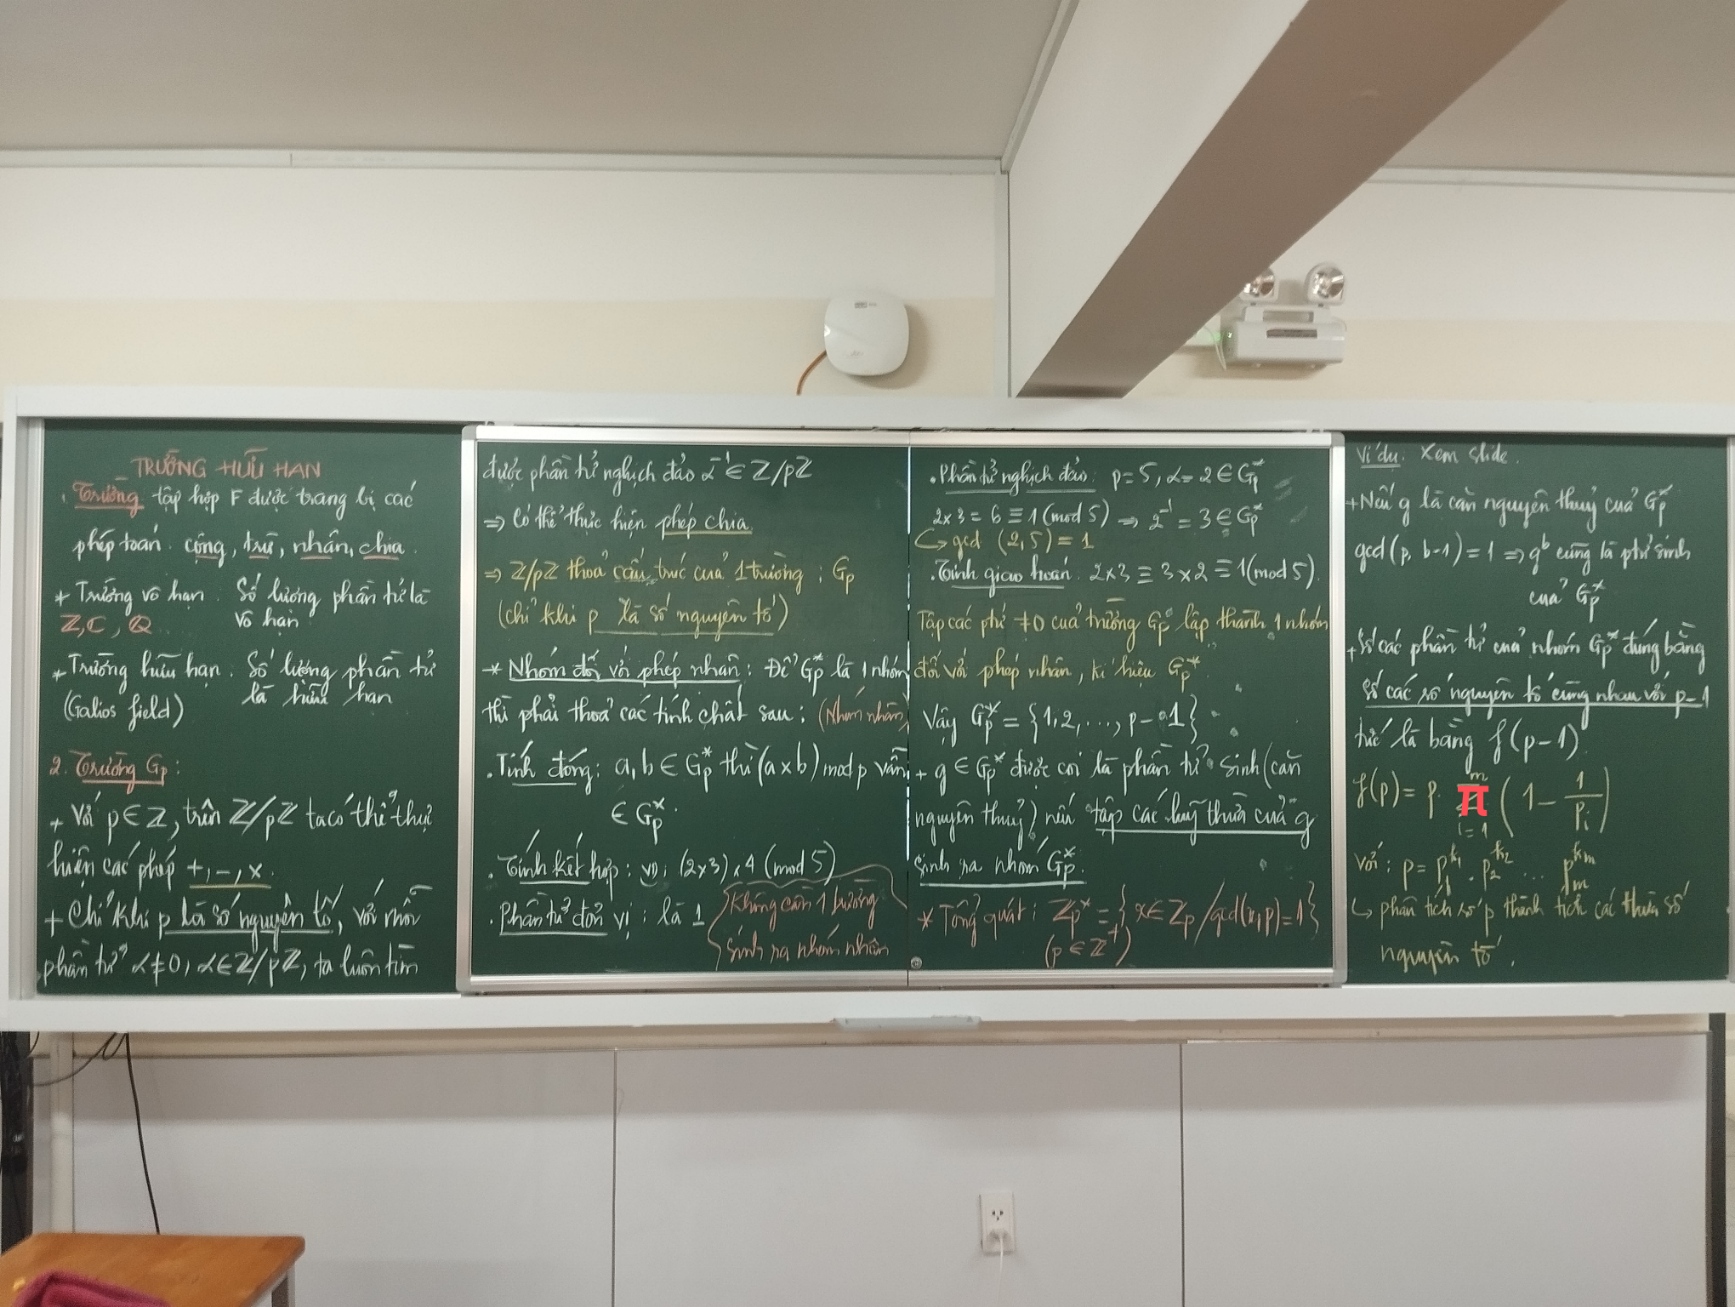 TRƯỜNG HỮU HẠN
. Trường tập hợp F được trang bị các
phép toán. cộng, trừ, nhân, chia.
+ Trường vô hạn. Số lượng phần tử là
Z, C, Q vô hạn
+ Trường hữu hạn. Số lượng phần tử
(Galios field) là hữu hạn
2. Trường Gp:
+ Với p ∈ Z, trên Z/pZ ta có thể thực
hiện các phép +, -, x.
+ Chỉ khi p là số nguyên tố, với mỗi
phần tử α ≠ 0, α ∈ Z/pZ, ta luôn tìm
được phần tử nghịch đảo α⁻¹ ∈ Z/pZ
⇒ Có thể thực hiện phép chia.
⇒ Z/pZ thoả cấu trúc của 1 trường: Gp
(chỉ khi p là số nguyên tố)
* Nhóm đối với phép nhân: Để Gp* là 1 nhóm
thì phải thoả các tính chất sau: (Nhóm nhân)
. Tính đóng: a, b ∈ Gp* thì (a x b) mod p vẫn
∈ Gp*.
. Tính kết hợp: VD: (2x3) x 4 (mod 5)
. Phần tử đơn vị: là 1
Không cần 1 trường
sinh ra nhóm nhân
. Phần tử nghịch đảo: p = 5, α = 2 ∈ Gp*
2x3 = 6 ≡ 1 (mod 5) ⇒ 2⁻¹ = 3 ∈ Gp*
↪ gcd (2,5) = 1
. Tính giao hoán. 2x3 ≡ 3x2 ≡ 1 (mod 5).
Tập các ptử ≠ 0 của trường Gp lập thành 1 nhóm
đối với phép nhân, kí hiệu Gp*.
Vậy Gp* = {1, 2, ..., p - 1}
+ g ∈ Gp* được coi là phần tử sinh (căn
nguyên thuỷ) nếu tập các luỹ thừa của g
sinh ra nhóm Gp*.
* Tổng quát: Zp* = { x ∈ Zp / gcd(x,p) = 1 }
(p ∈ Z⁺)
Ví dụ: Xem slide.
+ Nếu g là căn nguyên thuỷ của Gp*
gcd(p, b-1) = 1 ⇒ g^b cũng là ptử sinh
của Gp*
+ Số các phần tử của nhóm Gp* đúng bằng
số các số nguyên tố cùng nhau với p-1
tức là bằng f(p-1).
f(p) = p. π (i=1, m) (1 - 1/Pi)
Với: p = p₁^k₁ . p₂^k₂ ... pm^km
↪ phân tích số p thành tích các thừa số
nguyên tố.